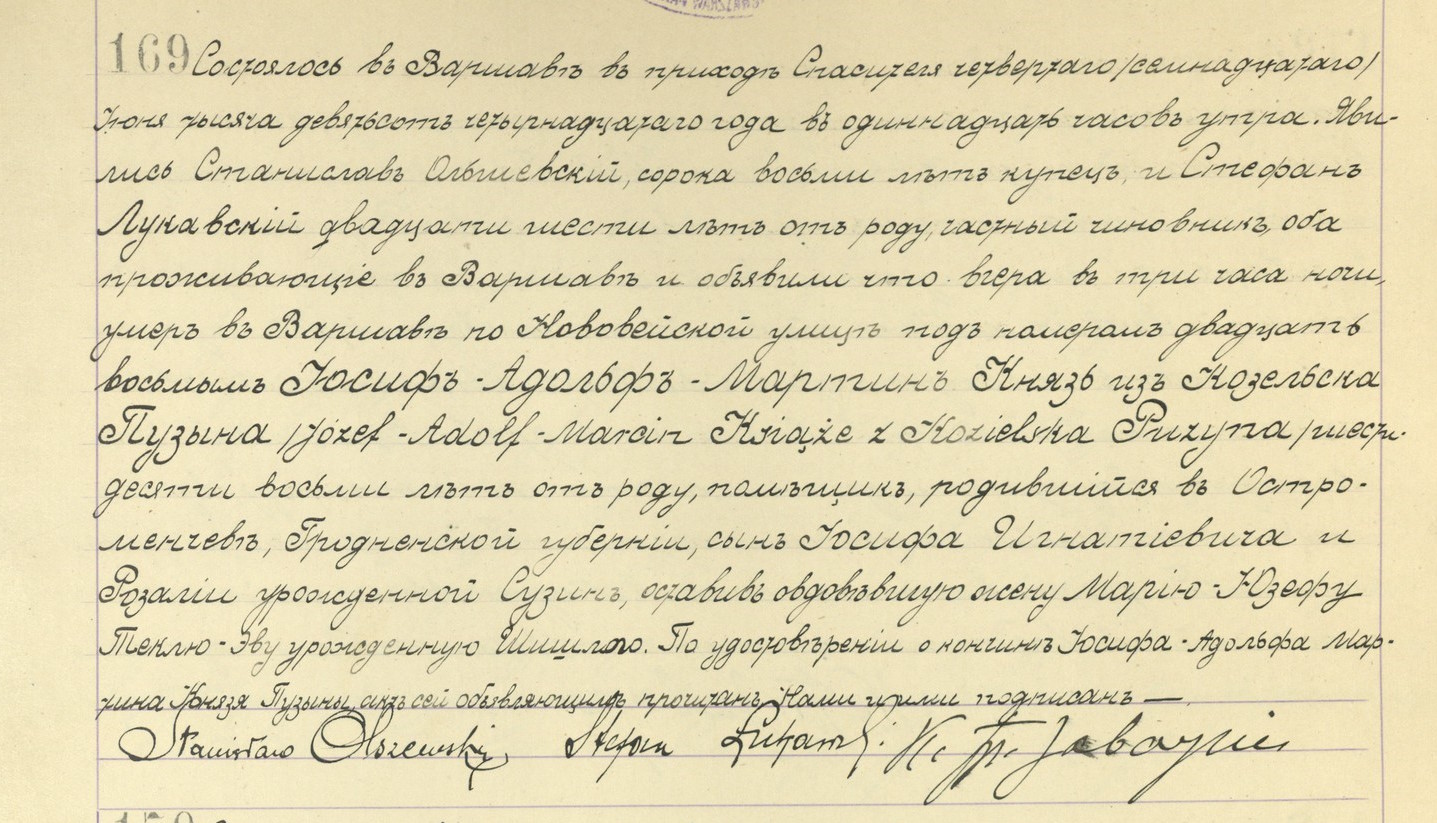 WARSZAWS
169 Состоялось въ Варшавѣ въ приходѣ Спасителя четвертаго /семнадцатаго/
Iюня тысяча девятьсотъ четырнадцатаго года въ одиннадцать часовъ утра. Яви-
лись Станиславъ Ольшевскій, сорока восьми лѣтъ купецъ, и Стефанъ
Лукавскій двадцати шести лѣтъ отъ роду, частный чиновникъ, оба
проживающіе въ Варшавѣ и объявили что вчера въ три часа ночи,
умеръ въ Варшавѣ по Нововейской улицѣ подъ номеромъ двадцать
восьмымъ Іосифъ-Адольфъ-Мартинъ Князь изъ Козельска
Пузына /Józef-Adolf-Marcin Książe z Kozielska Puzyna/ шести-
десяти восьми лѣтъ отъ роду, помѣщикъ, родившійся въ Остро-
менчевѣ, Гродненской губерніи, сынъ Іосифа Игнатіевича и
Розаліи урожденной Сузинъ, оставивъ овдовѣвшую жену Марію-Юзефу
Теклю-Эву урожденную Шишлло. По удостовѣреніи о кончинѣ Іосифа-Адольфа Мар-
тина Князя Пузыны, актъ сей объявляющимъ прочитанъ, Нами и ими подписанъ —
Stanisław Olszewski, Stefan